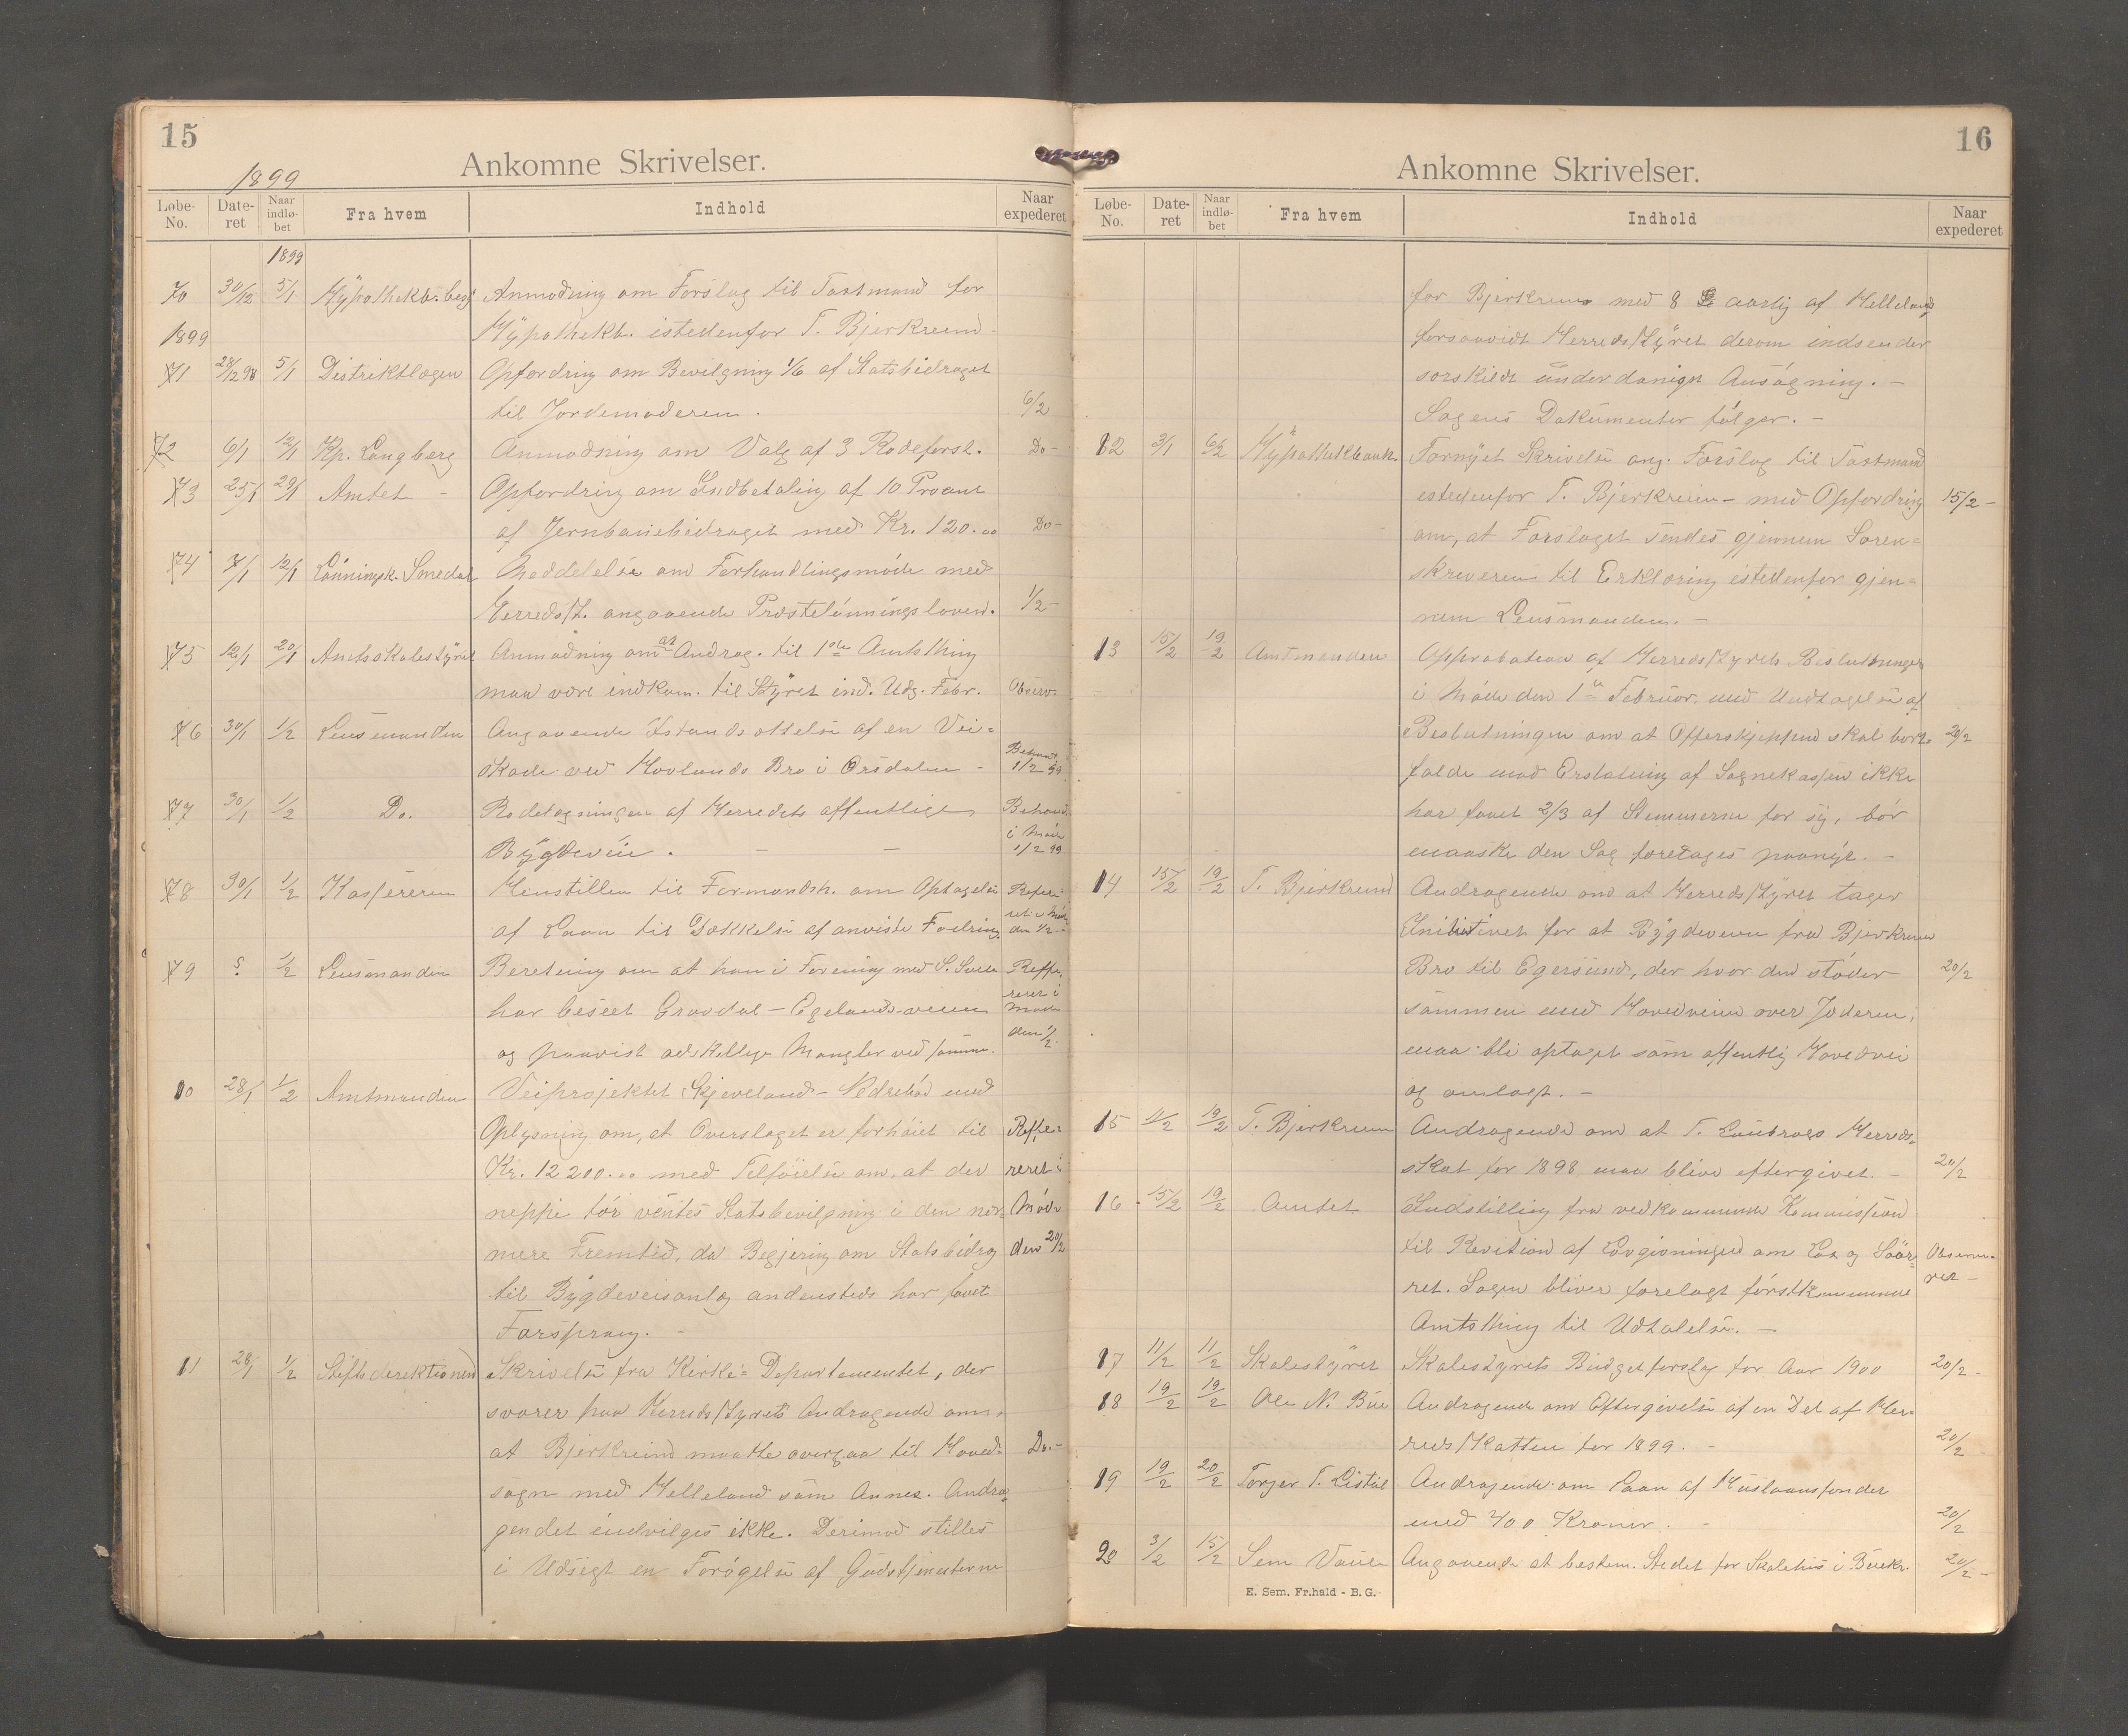 15
Ankomne Skrivelser.
1899
Løbe-No. Date-ret Naar indlø-bet Fra hvem Indhold Naar expederet
1899
70 30/12 5/1 Hypothekb. besj Anmodning om Forslag til Tastmand for
1899 Hypothekb. istedenfor T. Bjerkreim-
71 28/12 98 5/1 Distriktlægen Opfordring om Bevilgning 1/6 af Statsbidraget
til Jordemoderen. 6/2
72 6/1 12/1 Kp. Langberg Anmodning om Valg af 3 Rodeforst. Do-
73 25/1 29/1 Amtet - Opfordring om Indbetaling af 10 Procent
af Jernbanebidraget med Kr. 120.00 Do-
74 7/1 12/1 Lønningsk. Smedal Meddelelse om Forhandlingsmøde med
Herredsst. angaaende Præstelønningsloven. 1/2-
75 12/1 20/1 Amtsskolestyret Anmodning om at Andrag. til 1ste Amtsthing
maa være indkom. til Styret ind. Udg. Febr. Observ.
76 30/1 1/2 Lensmanden Angaaende Istandsættelse af en Vei-
skade ved Hovlands Bro i Ørsdalen - Behand. 1/2 99
77 30/1 1/2 Do. Rodelægningen af Herredets offentlige Behand.
Bygdeveie. - - i Møde 1/2 99
78 30/1 1/2 Kassereren Henstillen til Formandsk. om Optagelse Refere-
af Laan til Dækkelse af anviste Fodring. ret i Møde den 1/2
79 ? 1/2 Lensmanden Beretning om at han i Forening med S. Refe-
har beseet Gravdal-Egelands-veien reret i Møde
og paavist adskillige Mangler ved samme. den 1/2
10 28/1 1/2 Amtmanden Veiprojektet Skjeveland-Nedrebø med
Oplysning om, at Overslaget er forhøiet til Reffe-
Kr. 12200.00 med Tilføielse om, at der reret i
neppe tør ventes Statsbevilgning i den nær- Møde
mere Fremtid, da Begjering om Statsbidrag den 20/2
til Bygdeveisanlæg andensteds har faaet
Forsprang. -
11 28/1 1/2 Stiftsdirektionen Skrivelse fra Kirke-Departementet, der
svarer paa Herredsstyrets Andragende om,
at Bjerkreim maatte overgaa til Hoved- Do.-
sogn med Helleland som Annex. Andra-
gendet indvilges ikke. Derimod stilles
i Udsigt en Forøgelse af Gudstjenesterne
16
Ankomne Skrivelser.
Løbe-No. Date-ret Naar indlø-bet Fra hvem Indhold Naar expederet
for Bjerkreim med 8 aarlig af Helleland
forsaavidt Herredsstyret derom indsender
særskildt underdanigst Ansøgning. -
Sagens Dokumenter følger. -
12 3/1 6/2 Hypothekbank. Fornyet Skrivelse ang. Forslag til Tastmand
istedenfor T. Bjerkreim - med Opfordring 15/2-
om, at Forslaget sendes gjennem Soren-
skriveren til Erklæring istedenfor gjen-
nem Lensmanden. -
13 15/2 19/2 Amtmanden Approbation af Herredsstyrets Beslutninger
i Møde den 1ste Februar med Undtagelse af
Beslutningen om at Offerskjeppen skal bort- 20/2
falde mod Erstatning af Sognekassen ikke
har faaet 2/3 af Stemmerne for sig, bør
maaske den Sag foretages paanyt. -
14 15/2 19/2 T. Bjerkreim Andragende om at Herredsstyret tager
Initiativet for at Bygdeveien fra Bjerkreim
Bro til Egersund, der hvor den støder 20/2
sammen med Hovedveien over Jæderen,
maa bli optaget som offentlig Hovedvei
og omlagt. -
15 11/2 19/2 T. Bjerkreim Andragende om at T. Herreds-
skat for 1898 maa blive eftergivet. - 20/2
16 15/2 19/2 Amtet Indstilling fra vedkommende Kommission
til Revition af Lovgivningen om Lax og Søør- Observe-
ret. Sagen bliver forelagt førstkommende ret-
Amtsthing til Udtalelse. -
17 11/2 11/2 Skolestyret Skolestyrets Budgetforslag for Aar 1900 20/2-
18 19/2 19/2 Ole N. Bue Andragende om Eftergivelse af en Del af Her-
redsskatten for 1899. - 20/2
19 19/2 20/2 Torger T. Andragende om Laan af Huslaansfondet
med 400 Kroner. - 20/2
20 3/2 15/2 Sem Angaaende at bestem. Stedet for Skolehus i 20/2-
E. Sem. Fr.hald - B. G.